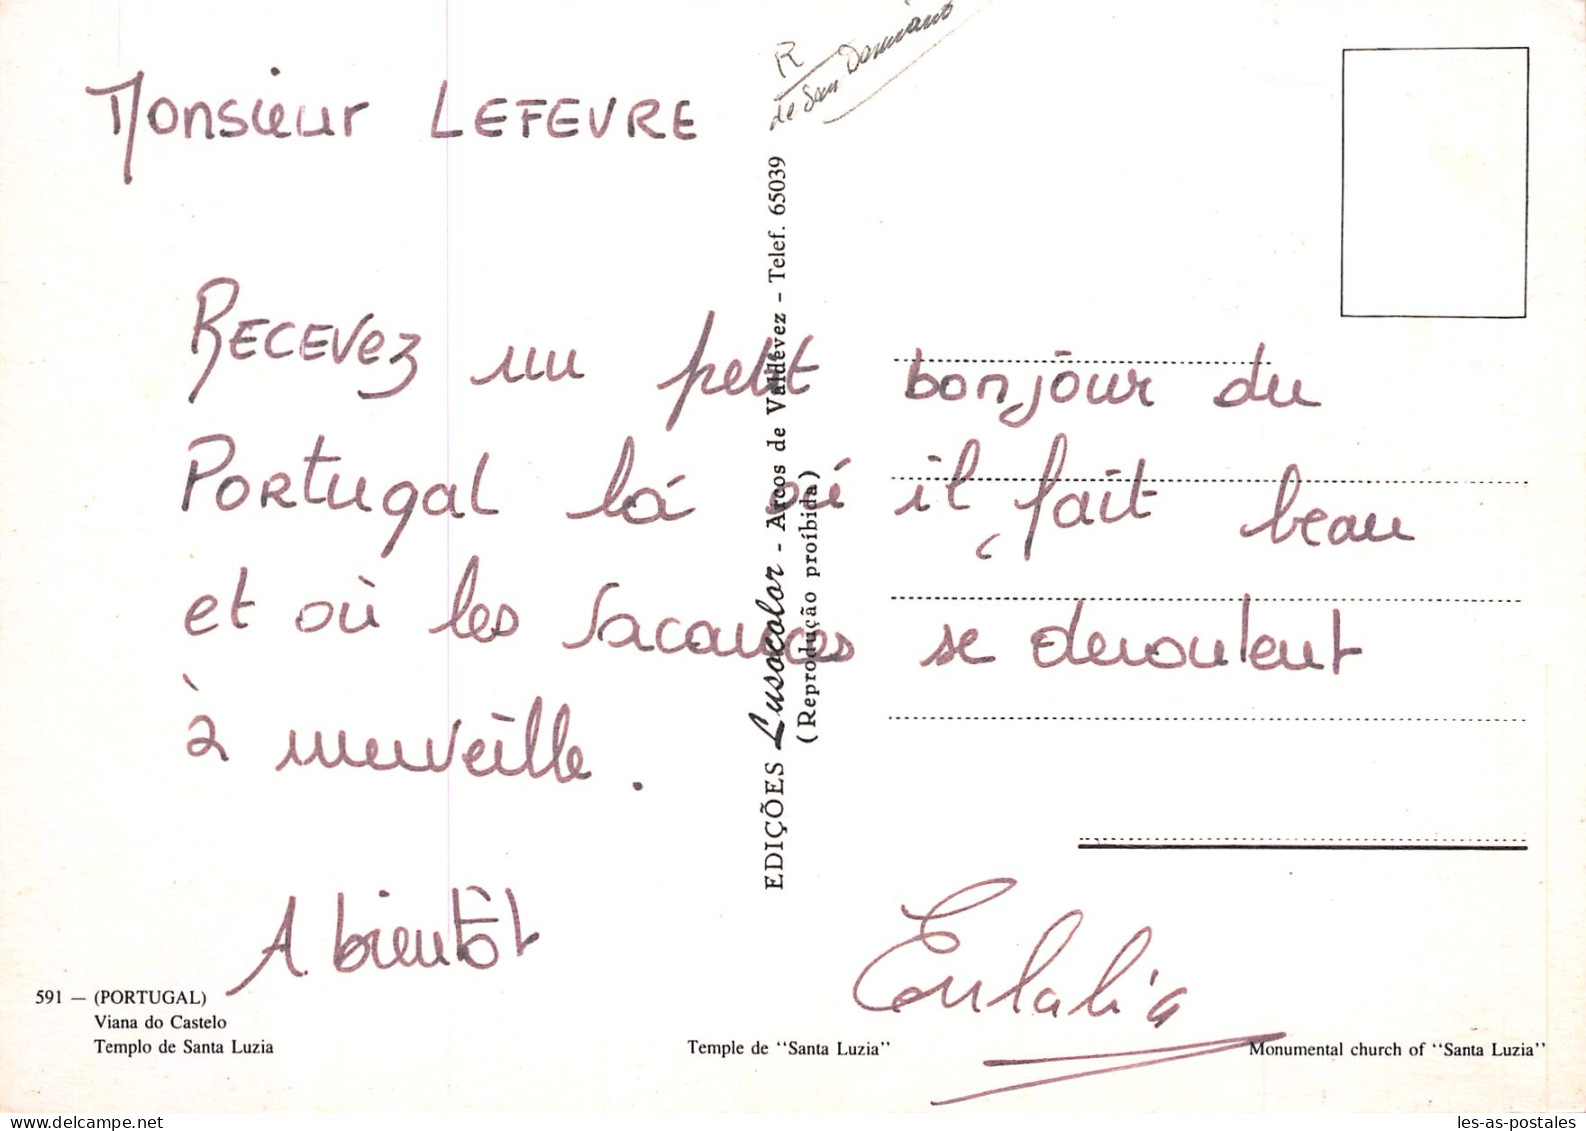 R
de San Damiano
Monsieur LEFEVRE
RECEVez un petit bonjour du
PORTugal là où il fait beau
et où les vacances se deroulent
à merveille.
A bientôt
Eulalia
EDIÇÕES Lusocolor - Arcos de Valdevez - Telef. 65039
(Reprodução proíbida)
591 — (PORTUGAL)
Viana do Castelo
Templo de Santa Luzia
Temple de "Santa Luzia"
Monumental church of "Santa Luzia"
les-as-postales